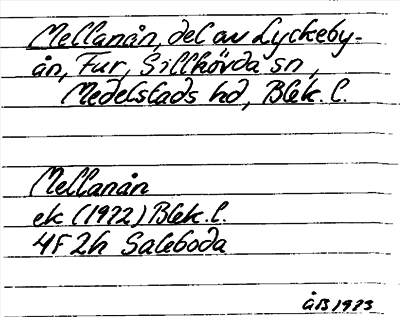 Mellanån, del av Lyckeby-
ån, Fur, Sillhövda sn,
Medelstads hd, Blek. l.
Mellanån
ek (1972) Blek. l.
4F 2h Saleboda
ÅB 1973